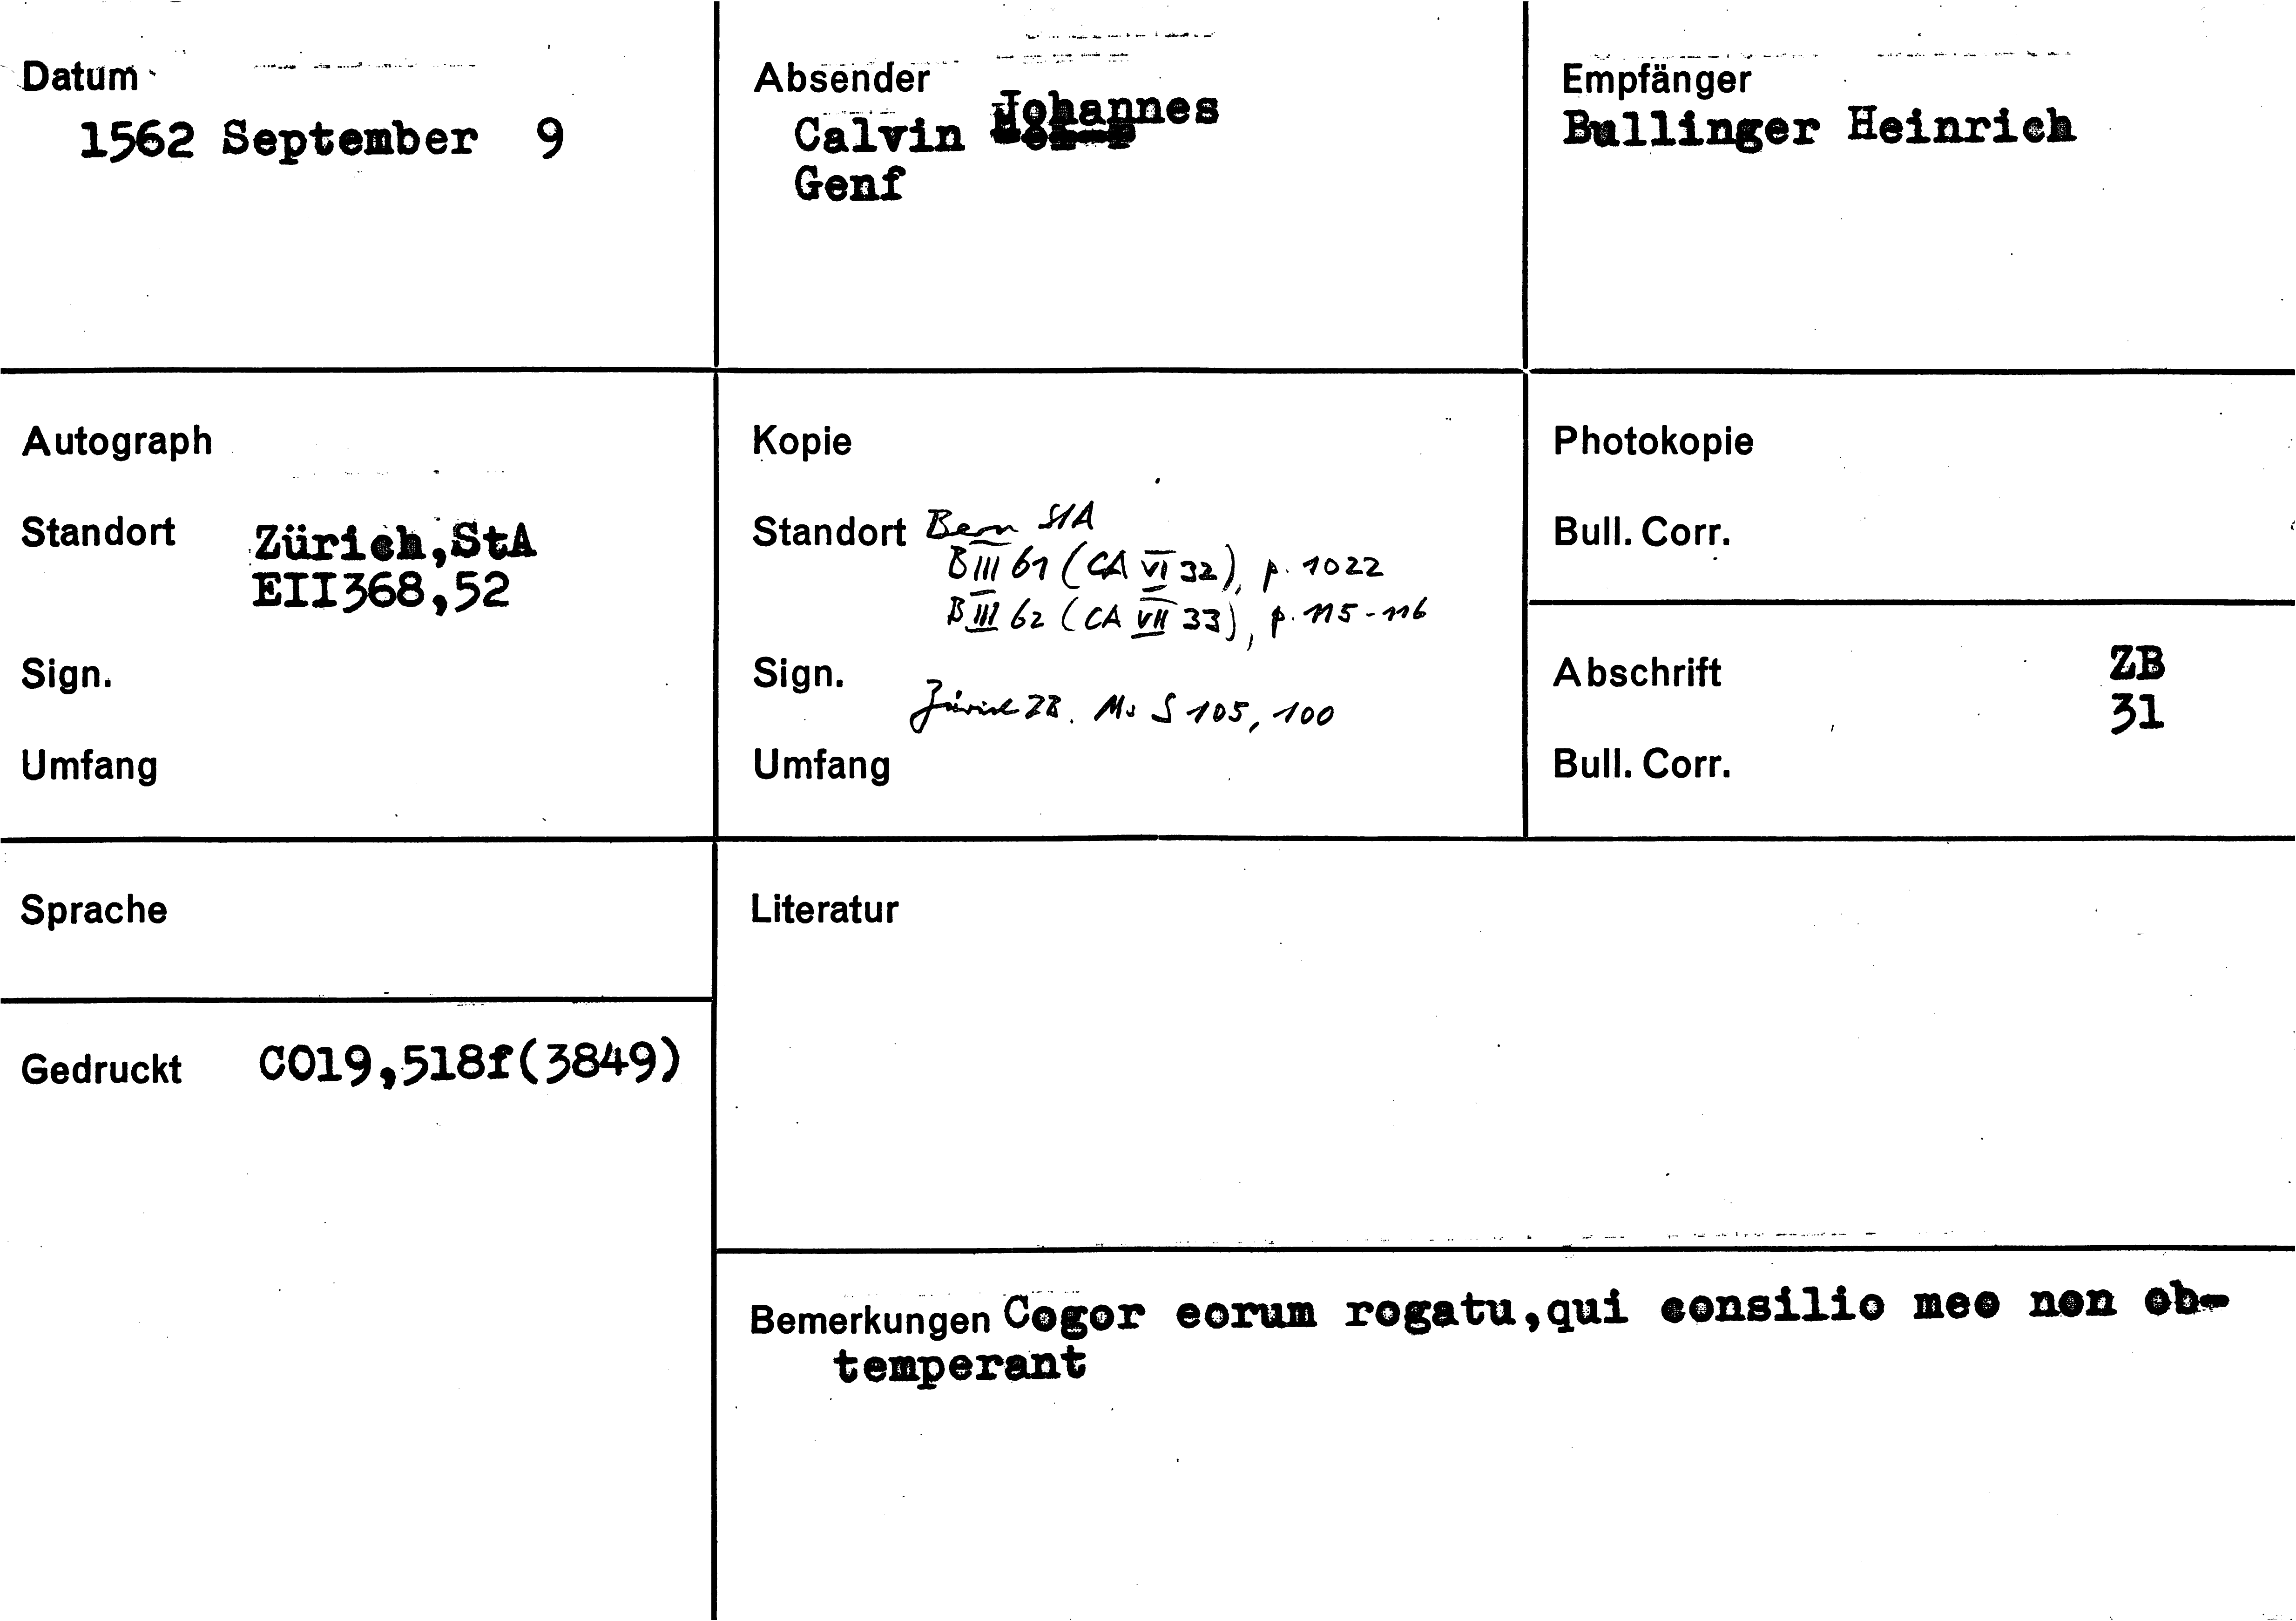 Datum
1562 September 9
Absender
Calvin Johannes
Genf
Empfänger
Bullinger Heinrich
Autograph
Standort Zürich,StA
EII368,52
Sign.
Umfang
Kopie
Standort Bern StA
B III 61 (CA VI 32), p. 1022
B III 62 (CA VII 33), p. 115-116
Sign.
Zürich ZB. Ms S 105, 100
Umfang
Photokopie
Bull. Corr.
Abschrift ZB
31
Bull. Corr.
Sprache
Literatur
Gedruckt CO19,518f(3849)
Bemerkungen Cogor eorum rogatu,qui consilio meo non ob-
temperant